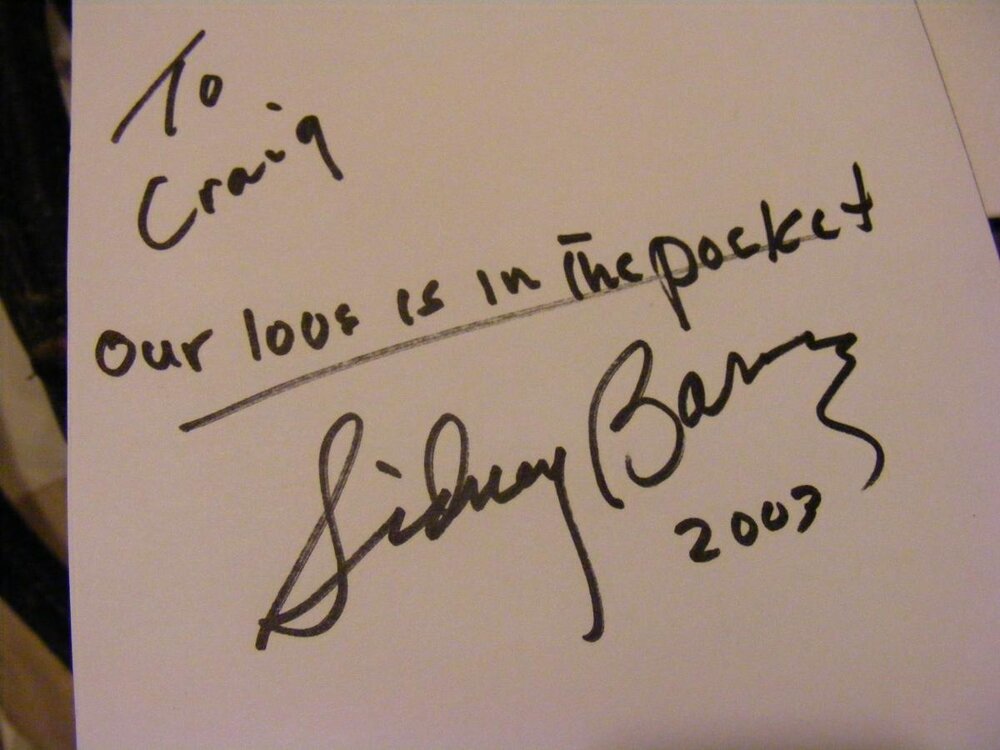 To
Craig
Our love is in The pocket
Sidney Barnes
2003